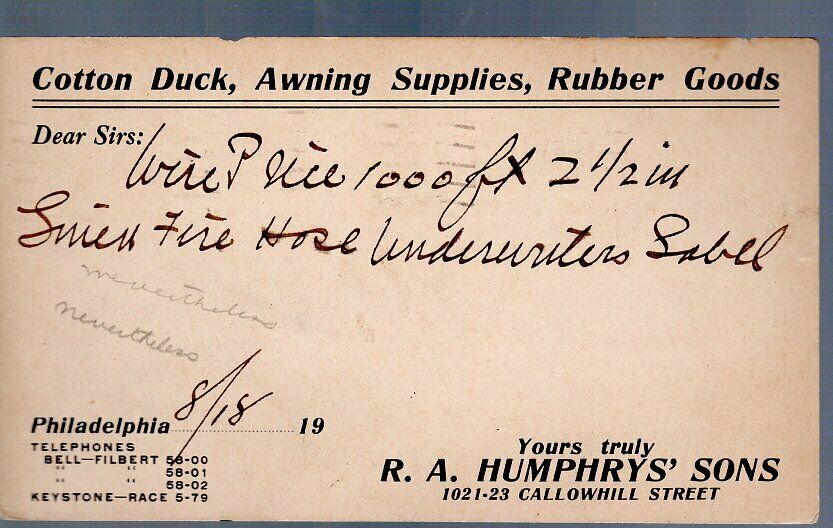 Cotton Duck, Awning Supplies, Rubber Goods
Dear Sirs:
Wire Price 1000 ft 2 1/2 in
Linen Fire Hose Underwriters Label
nevertheless
nevertheless
Philadelphia 8/18 19
TELEPHONES
BELL—FILBERT 58-00
" " 58-01
" " 58-02
KEYSTONE—RACE 5-79
Yours truly
R. A. HUMPHRYS' SONS
1021-23 CALLOWHILL STREET